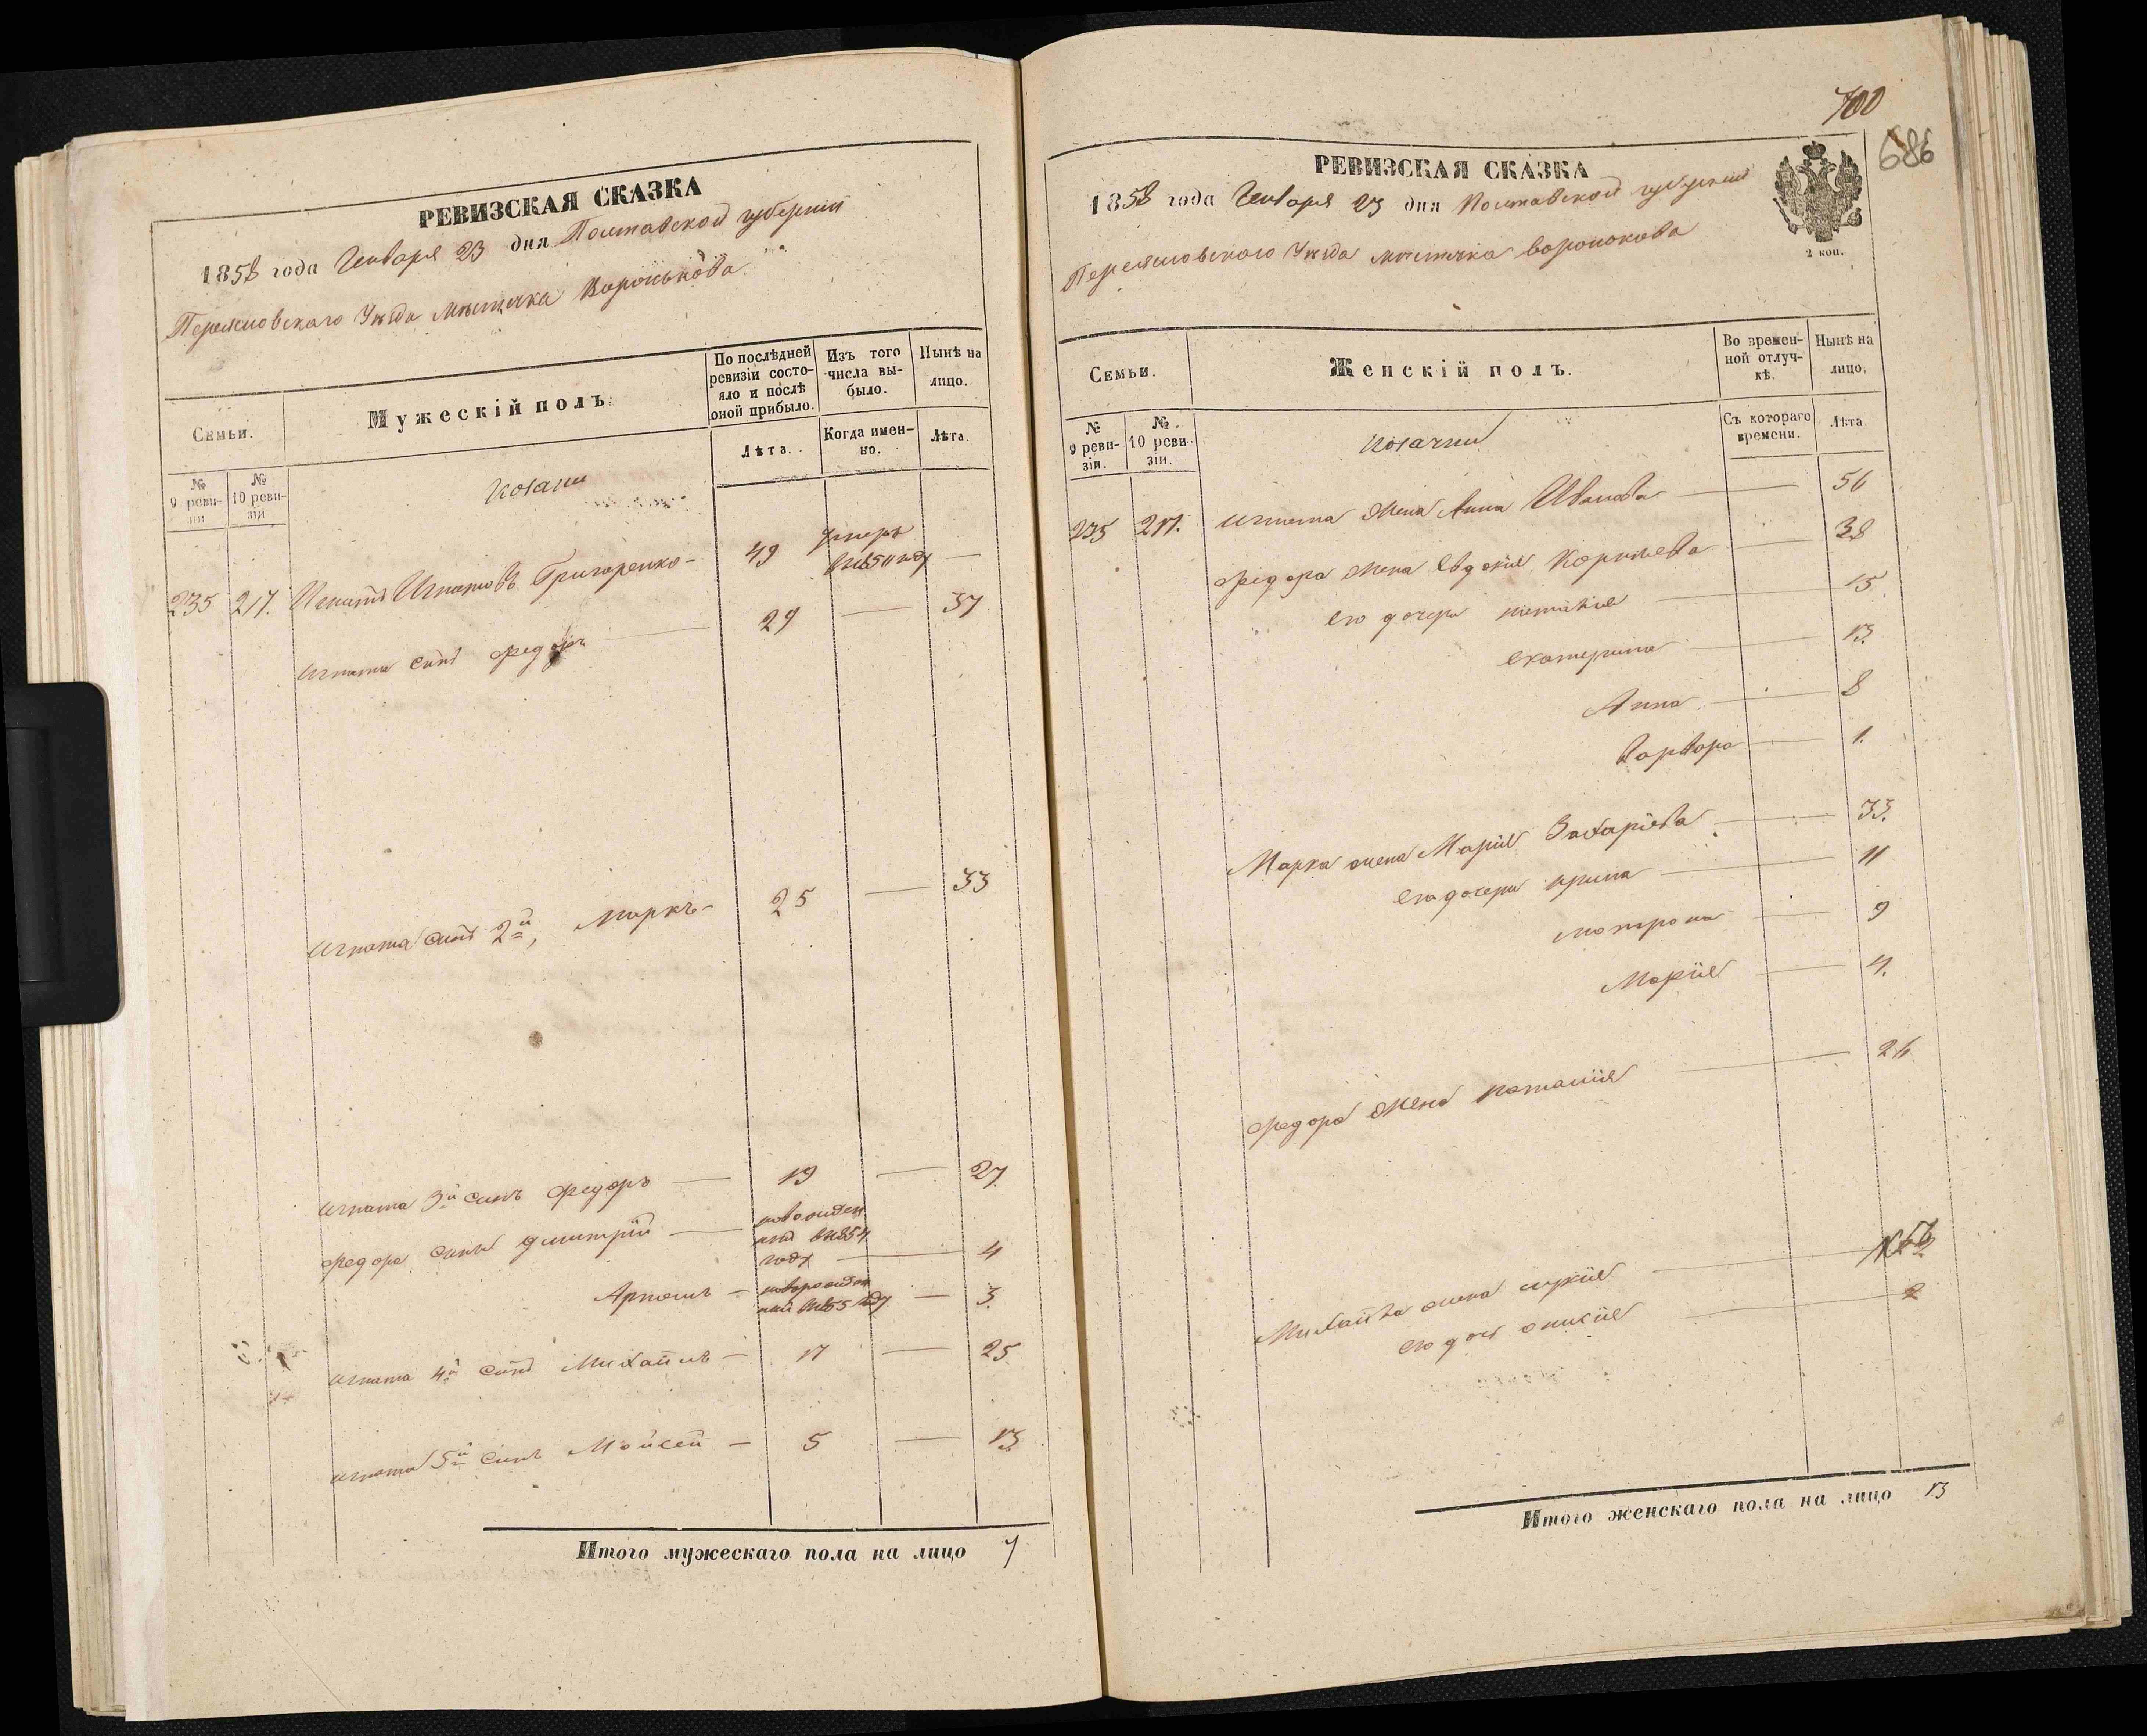 РЕВИЗСКАЯ СКАЗКА
1858 года Генваря 23 дня Полтавской губернии
Переясловского Уезда местечка Воронькова
Семьи.
Мужескій полъ.
По послѣдней ревизіи состояло и послѣ оной прибыло.
Изъ того числа выбыло.
Нынѣ на лицо.
№ 9 ревизіи
№ 10 ревизіи
Лѣта.
Когда именно.
Лѣта.
козаки
235 217. Игнатъ Игнатовъ Григоренко - 49 умеръ в 1850 году —
Игната синъ Федоръ — 29 — 37
Игната синъ 2й, Маркъ - 25 — 33
Игната 3й синъ Федоръ — 19 — 27.
Федора синъ Димитрій — новорожден
ній в 1854
году — 4
Артемъ — новорожден
ній в 1855 году — 3.
Игната 4й синъ Михаилъ — 17 — 25
Игната 5й синъ Мойсей — 5 — 13
Итого мужескаго пола на лицо 7
700
686
РЕВИЗСКАЯ СКАЗКА
1858 года Генваря 23 дня Полтавской губернии
2 коп.
Переясловского Уезда местечка Воронькова
Семьи.
Женскій полъ.
Во временной отлучкѣ.
Нынѣ на лицо.
№ 9 ревизіи.
№ 10 ревизіи.
Съ котораго времени.
Лѣта.
козачки
235 217. Игната жена Анна Иванова — 56
Федора жена Евдокия Корниева — 38
его дочери Наталия — 15
Екатерина — 13.
Анна — 8
Варвара — 1.
Марка жена Мария Захаріева — 33.
его дочери Ирина — 11
Мотрона — 9
Марія — 4.
Федора жена Наталия — 26
Михаила жена —
его дочь — 2
Итого женскаго пола на лицо 13